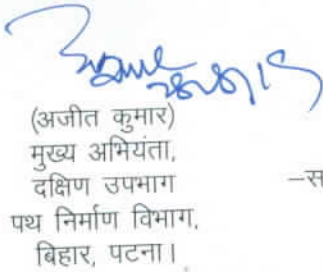 (अजीत कुमार)
मुख्य अभियंता,
दक्षिण उपभाग
पथ निर्माण विभाग,
बिहार, पटना।
–स